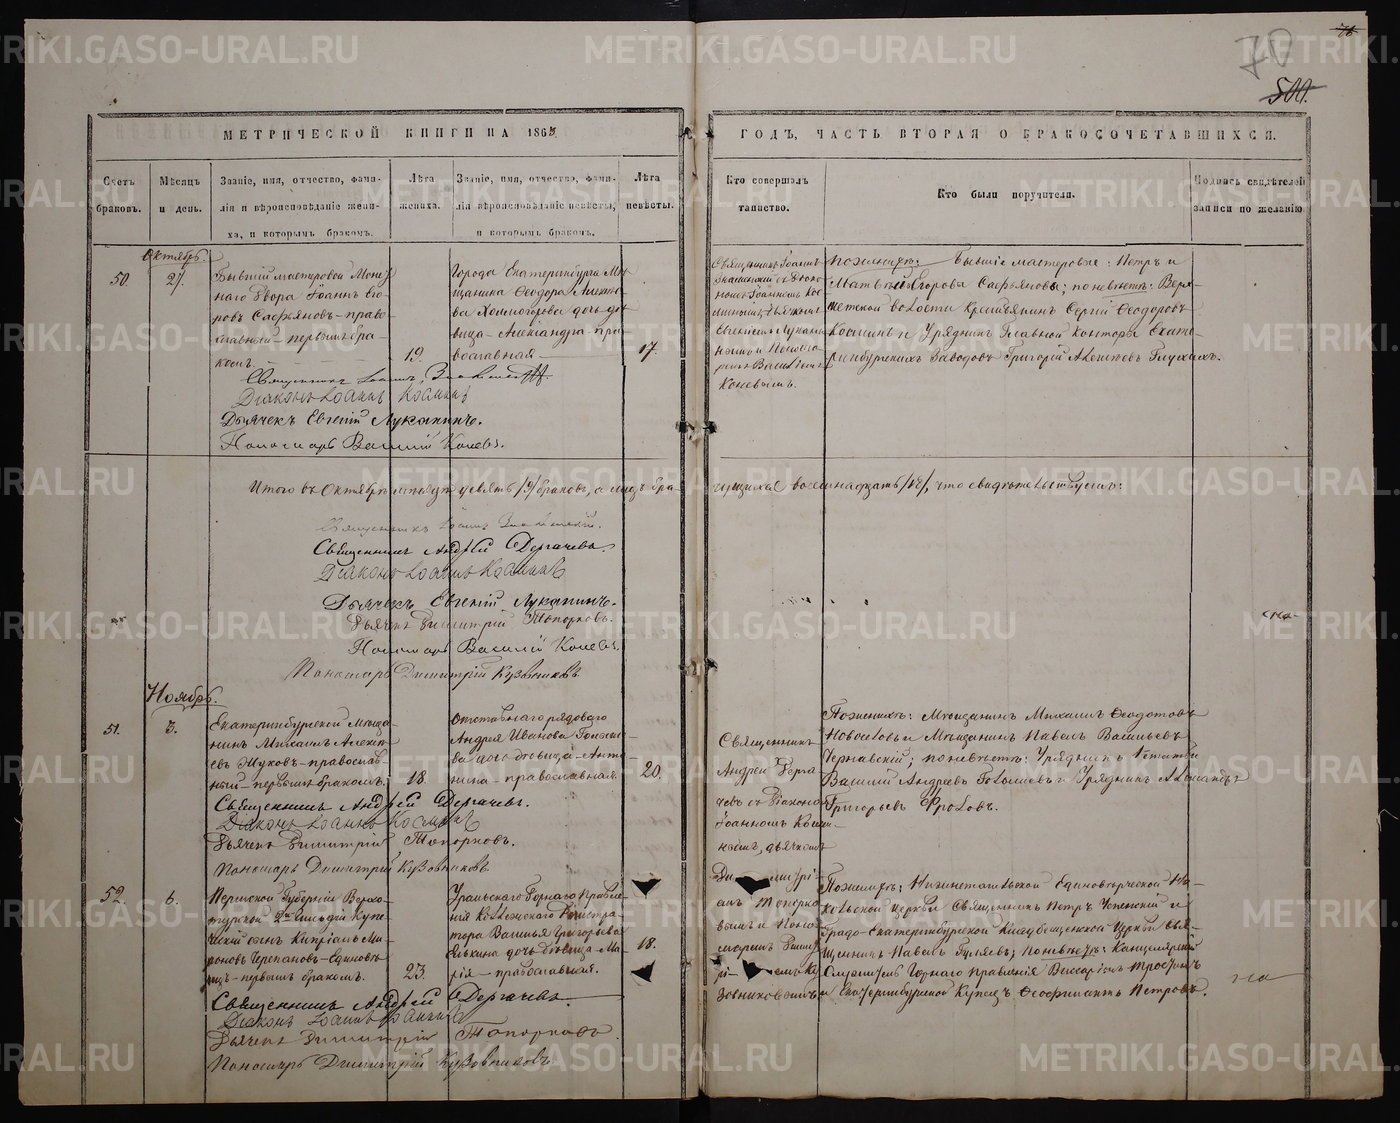 70
500.
МЕТРИЧЕСКОЙ КНИГИ НА 1863
ГОДЪ, ЧАСТЬ ВТОРАЯ О БРАКОСОЧЕТАВШИХСЯ.
Счетъ браковъ.
Мѣсяцъ и день.
Званіе, имя, отчество, фами-
лія и вѣроисповѣданіе жени-
ха, и которымъ бракомъ.
Лѣта жениха.
Званіе, имя, отчество, фами-
лія вѣроисповѣданіе невѣсты,
и которымъ бракомъ.
Лѣта невѣсты.
Кто совершалъ таинство.
Кто были поручители.
Подпись свидѣтелей записи по желанію
Октябрь.
50.
27.
Бывшій мастеровой Монет
наго Двора Іоаннъ Его
ровъ Сафьяновъ - право
славный - первымъ бра-
комъ.
19.
Города Екатеринбурга Мѣ
щанина Ѳеодора Алексѣе
ва Холмогорова дочь дѣ
вица - Александра - пра
вославная
17.
Священникъ Іоаннъ
Знаменскій съ Діако
номъ Іоанномъ Кос
минымъ, дьячкомъ
Евгеніемъ Лукани
нымъ и Понома
ремъ Василіемъ
Коневымъ.
По женихѣ: Бывшіе мастеровые: Петръ и
Матвѣй Егоровы Сафьяновы; по невѣстѣ: Верх-
нетской волости Крестьянинъ Сергій Ѳеодоровъ
Космынъ и Урядникъ Главной Конторы Екате
ринбургскихъ Заводовъ Григорій Алексѣевъ Глухихъ.
Священникъ Іоаннъ Знаменскій.
Діаконъ Іоаннъ Косминъ
Дьячекъ Евгеній Луканинъ.
Пономарь Василій Коневъ.
Итого въ Октябрѣ мѣсяцѣ девять /9/ браковъ, а лицъ бра-
чущихся восемнадцать /18/, что свидѣтельствуемъ:
Священникъ Іоаннъ Знаменскій.
Священникъ Андрей Дергачевъ.
Діаконъ Іоаннъ Косминъ
Дьячекъ Евгеній Луканинъ.
Дьячекъ Димитрій Топорковъ.
Пономарь Василій Коневъ.
Пономарь Димитрій Кузовниковъ
Ноябрь.
51.
3.
Екатеринбургской Мѣща-
нинъ Михаилъ Алексѣ
евъ Жуковъ - православ
ный - первымъ бракомъ.
18.
Отставнаго рядоваго
Андрея Иванова
дочь дѣвица - Анто
нина - православная
20.
Священникъ
Андрей Дерга
чевъ съ Діакономъ
Іоанномъ Косми-
нымъ, дьячкомъ
По женихѣ: Мѣщанинъ Михаилъ Ѳеодотовъ
Новоселовъ и Мѣщанинъ Павелъ Васильевъ
Чернавскій; по невѣстѣ: Урядникъ
Василій Андреевъ и Урядникъ Александръ
Григорьевъ Фроловъ.
Священникъ Андрей Дергачевъ.
Діаконъ Іоаннъ Косминъ
Дьячекъ Димитрій Топорковъ.
Пономарь Димитрій Кузовниковъ.
52.
6.
Пермской Губерніи Верхо-
турской 2й Гильдіи Купе
ческій сынъ Кипріанъ Ми
роновъ Черепановъ - Единовѣ
рецъ - первымъ бракомъ.
23.
Уральскаго Горнаго Правле
нія Коллежскаго Регистра-
тора Василья Григорьева
дочь дѣвица - Ма
рія - православная.
18.
Ди митрі-
емъ Топорко
вымъ и Поно
маремъ Дими
рі емъ Ку
зовниковымъ
По женихѣ: Нижнетагильской Единовѣрческой Ни
кольской церкви Священникъ Петръ и
Градо-Екатеринбургской церкви Свя-
щенникъ Павелъ Гуляевъ; по невѣстѣ: Канцелярскій
Служитель Горнаго Правленія Виссаріонъ
и Екатеринбургской Купецъ Ѳеофилактъ Петровъ.
Священникъ Андрей Дергачевъ.
Діаконъ Іоаннъ Косминъ
Дьячекъ Димитрій Топорковъ
Пономарь Димитрій Кузовниковъ
METRIKI.GASO-URAL.RU